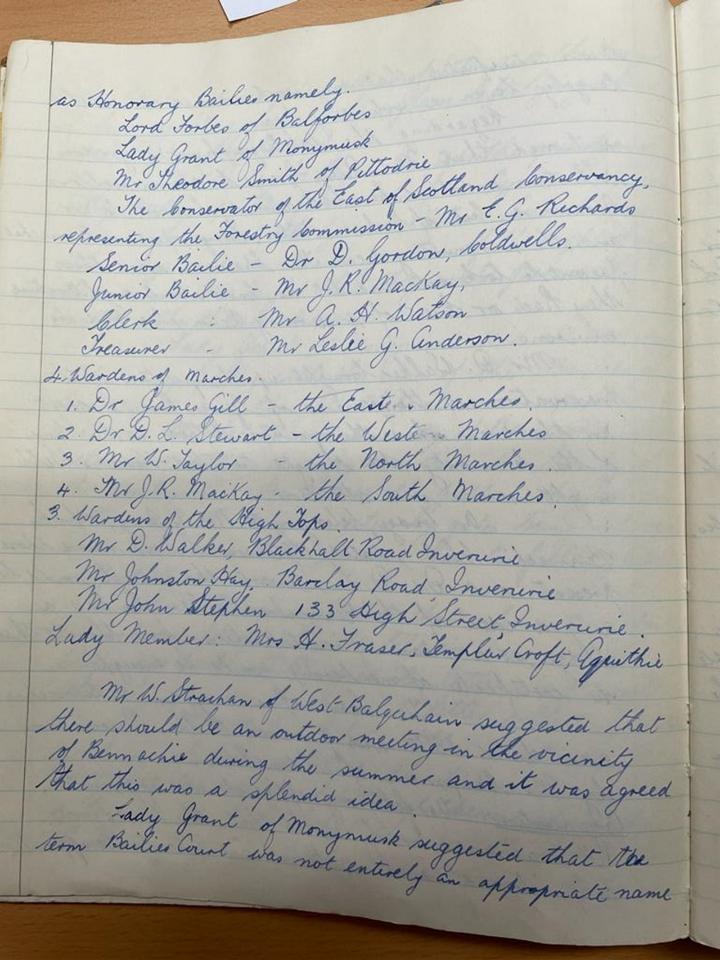 as Honorary Bailies namely.
Lord Forbes of Balforbes
Lady Grant of Monymusk
Mr Theodore Smith of Pittodrie
The Conservator of the East of Scotland Conservancy,
representing the Forestry Commission - Mr E.G. Richards
Senior Bailie - Dr D. Gordon, Coldwells.
Junior Bailie - Mr J.R. MacKay,
Clerk : Mr A. H. Watson
Treasurer - Mr Leslie G. Anderson.
4. Wardens of Marches.
1. Dr James Gill - the East Marches.
2. Dr D. L. Stewart - the West Marches
3. Mr W. Taylor - the North Marches.
4. Mr J.R. MacKay - the South Marches.
3. Wardens of the High Tops.
Mr D. Walker, Blackhall Road Inverurie
Mr Johnston Hay, Barclay Road, Inverurie
Mr John Stephen 133 High Street, Inverurie.
Lady Member: Mrs H. Fraser, Templar Croft, Aquithie
Mr W. Strachan of West Balquhain suggested that
there should be an outdoor meeting in the vicinity
of Bennachie during the summer and it was agreed
that this was a splendid idea.
Lady Grant of Monymusk suggested that the
term Bailies Court was not entirely an appropriate name